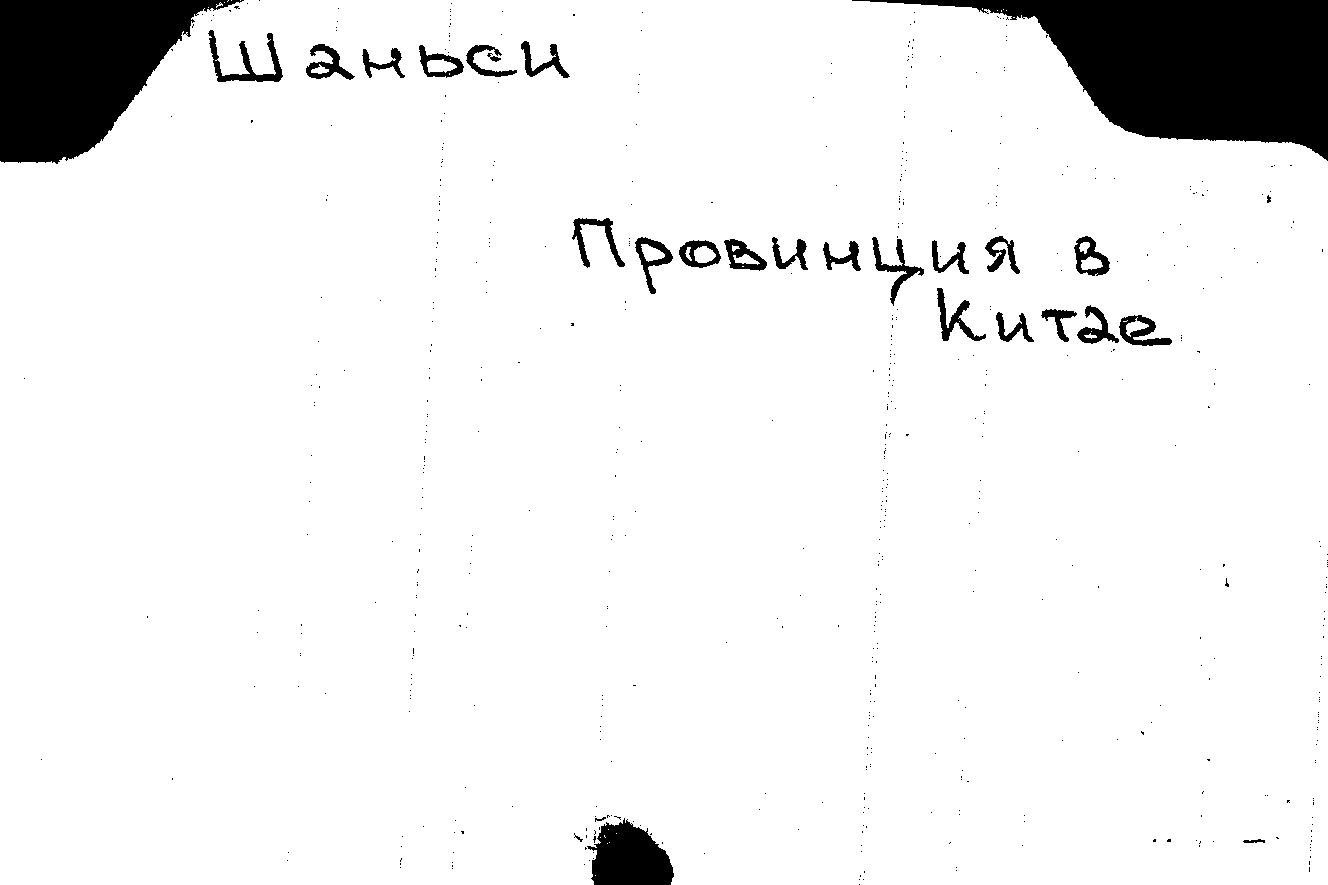 Шаньси
Провинция в
Китае